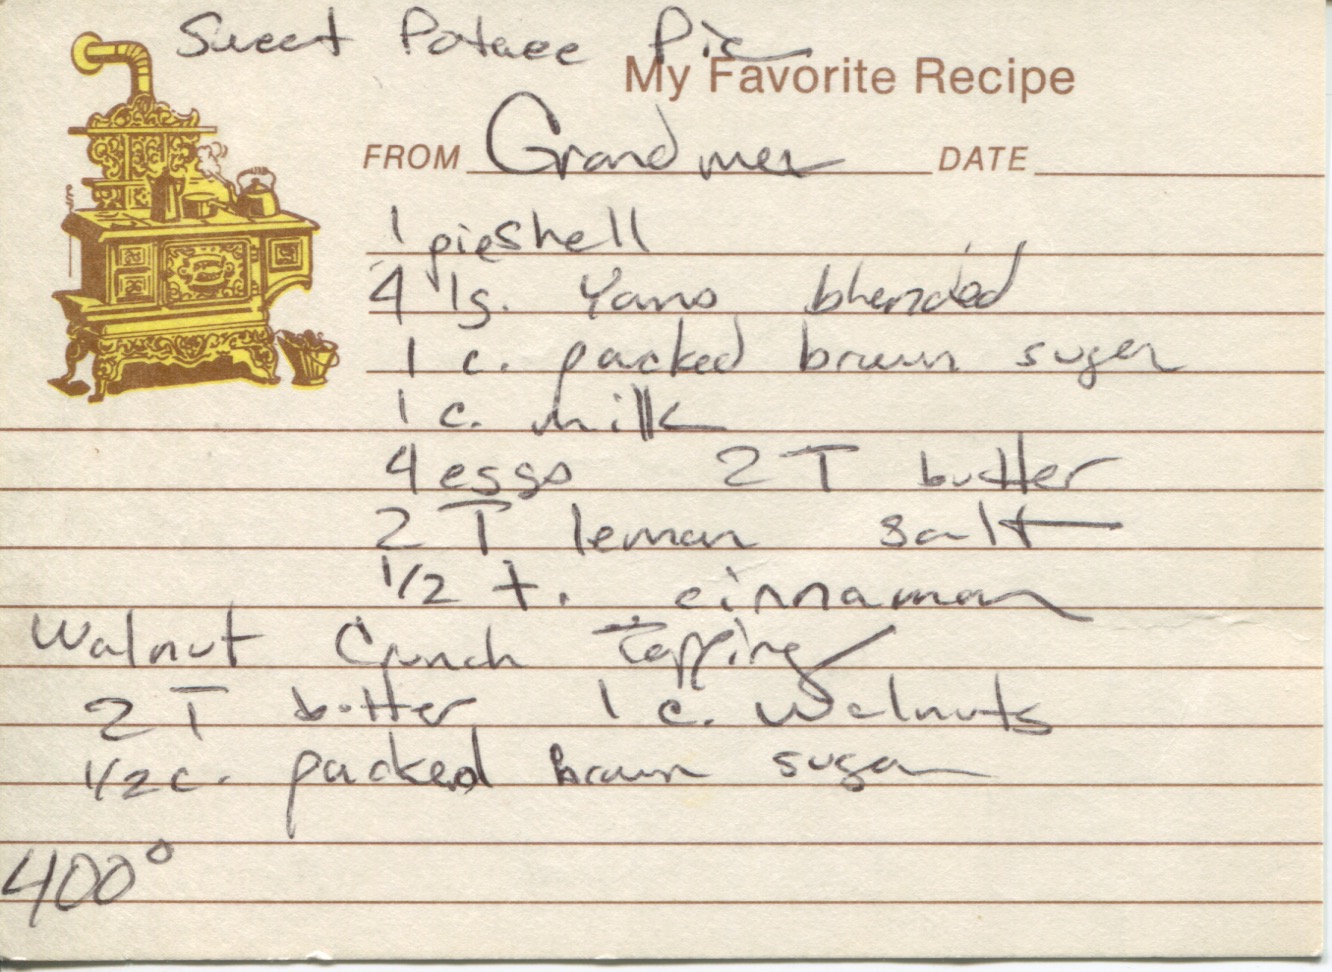 Sweet Potatoe Pie
My Favorite Recipe
FROM Grandmer DATE
1 pieshell
4 lg. Yams blended
1 c. packed brown sugar
1 c. milk
4 eggs 2 T butter
2 T lemon salt
1/2 t. cinnamon
Walnut Crunch Topping
2 T butter 1 c. Walnuts
1/2 c. packed brown sugar
400°